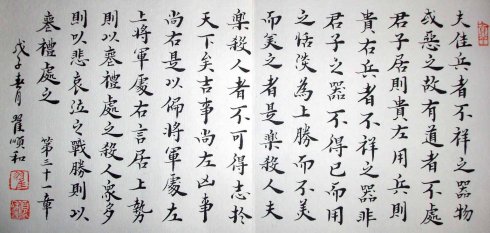 夫佳兵者不祥之器物
或惡之故有道者不處
君子居則貴左用兵則
貴右兵者不祥之器非
君子之器不得已而用
之恬淡為上勝而不美
而美之者是樂殺人夫
樂殺人者不可得志於
天下矣吉事尚左凶事
尚右是以偏將軍處左
上將軍處右言居上勢
則以喪禮處之殺人衆多
則以悲哀泣之戰勝則以
喪禮處之 第三十一章
戊子 月 翟順和